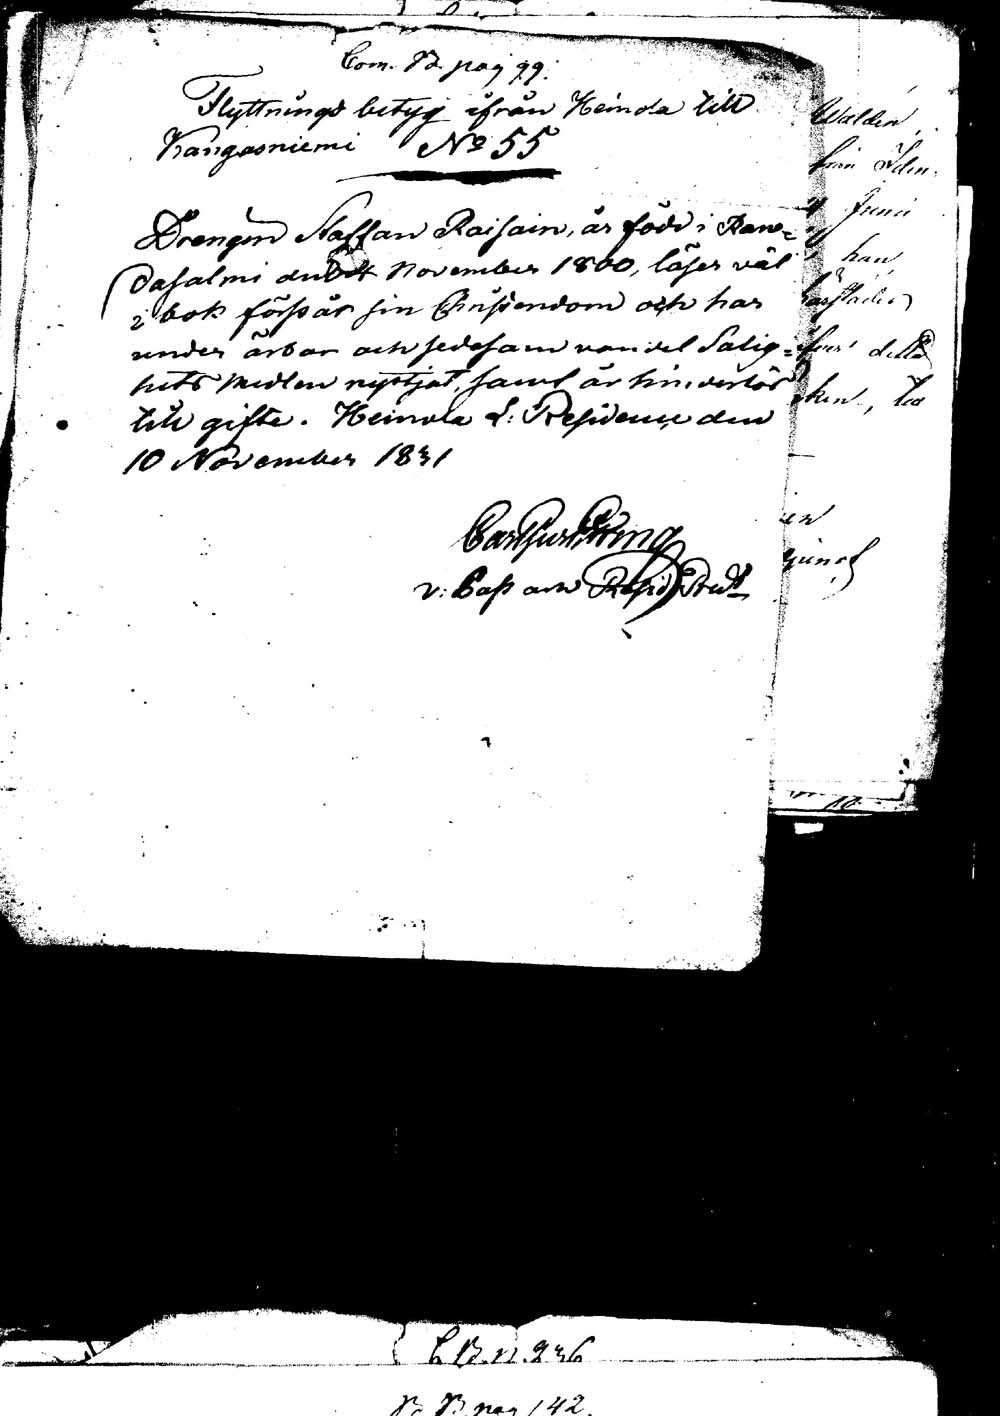 Com. B. pag 99.
Flyttnings betyg ifrån Heinola till
Kangasniemi No 55
Drengen Staffan Raisain, är född i Ran=
dasalmi den November 1800, läser väl
i bok förstår sin Christendom och har
under ärbar och sedesam vandel Salig=
hets medlen nyttjat, samt är hinderlös
till gifte. Heinola L: Residence den
10 November 1831
v: Past och Resid Pred
Walden
från Iden
Juni
han
detta
ken, til
C.B.N. 236
B. B. pag 142.